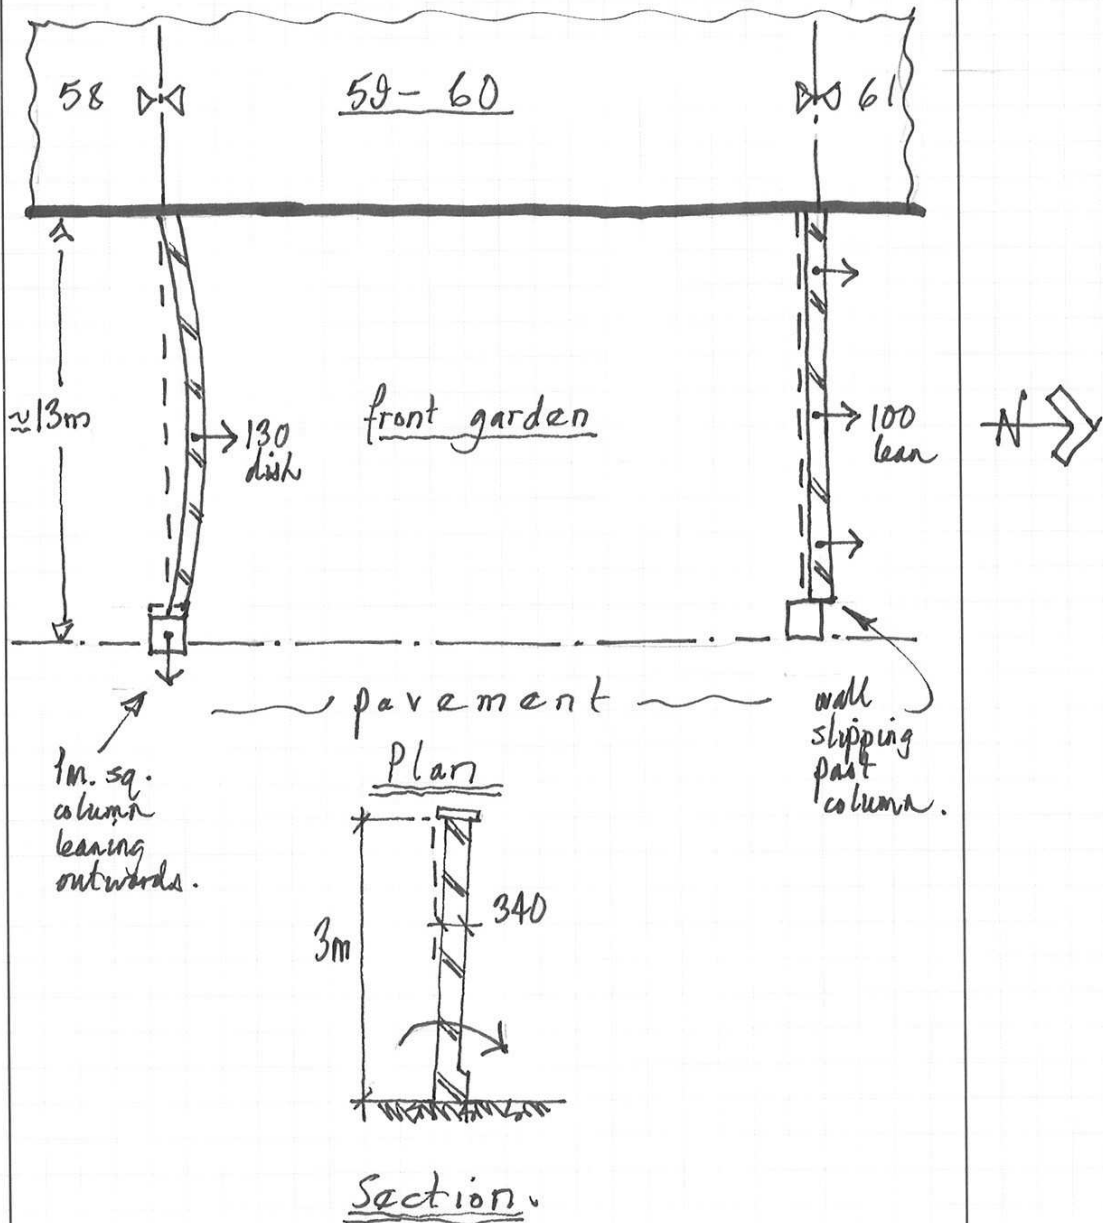 58
59-60
61
≈13m
130
dish
front garden
100
lean
N
pavement
1m. sq.
column
leaning
outwards.
wall
slipping
past
column.
Plan
3m
340
Section.